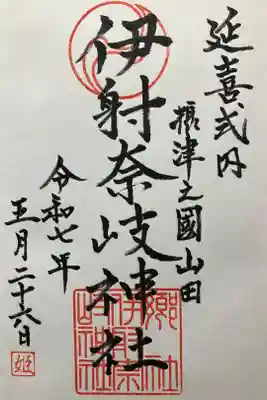 延喜式内
摂津之國山田
伊射奈岐神社
令和七年
五月二十六日
郷社
伊射奈
岐神社
姫